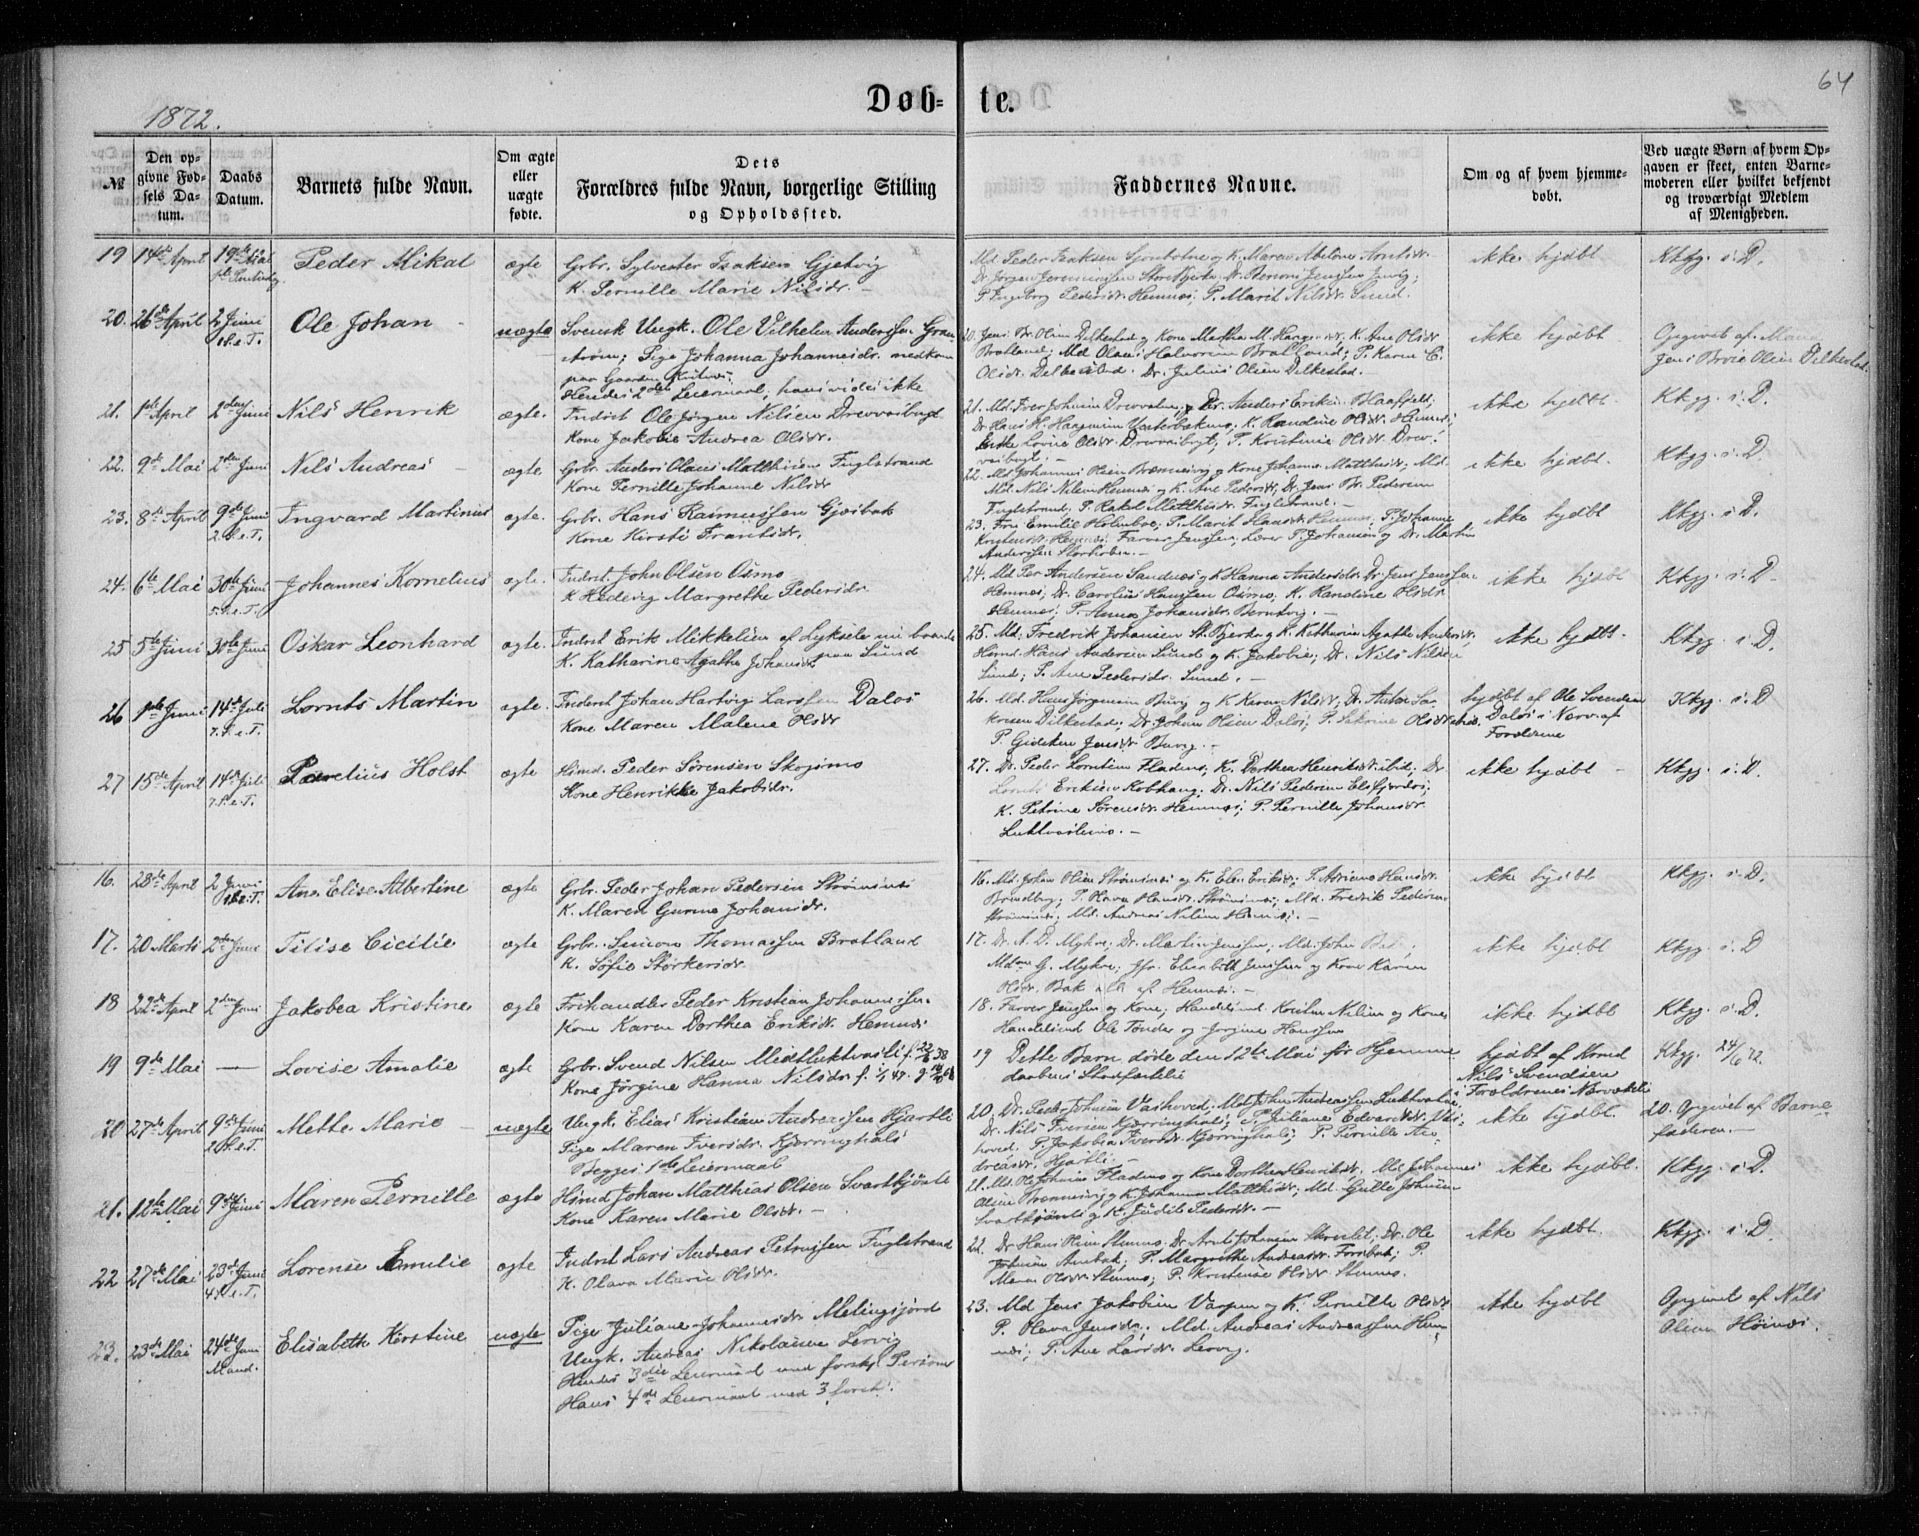 64
1872.
Døb- te.
№
Den op-
givne Fød-
sels Da-
tum.
Daabs
Datum.
Barnets fulde Navn.
Om ægte
eller
uægte
fødte.
Dets
Forældres fulde Navn, borgerlige Stilling
og Opholdssted.
Faddernes Navne.
Om og af hvem hjemme-
døbt.
Ved uægte Børn af hvem Op-
gaven er skeet, enten Barne-
moderen eller hvilket bekjendt
og troværdigt Medlem
af Menigheden.
19 14de April 19de Mai
Peder Mikal ægte
Grb. Sylvester Isaksen Gjetvig
K. Pernille Marie Nilsdr. –
Md Peder Isaksen
P. Ingeborg Pedersdr. Hemnes; P. Marit Nilsdr. Sund.
ikke hjdbt Kkgg. i. D.
20. 26de April 2 Juni
1.S.e.T.
Ole Johan uægte
Svensk Ungk. Ole Vilhelm Anderssen Gran-
strøm; Pige Johanna Johannesdr. nedkom
paa Gaarden
Hendes 2det Leiermaal, hans vides ikke
20. Jens Br. Olsen Dilkestad og Kone Martha M. K. Ane Olsdr
Bratland; Md Olaus Halvorsen Bratland; P. Karen
Olsdr. Dilkestad. Dr. Julius Olsen Dilkestad.
ikke hjdbt
Opgivet af
Jens Olsen Dilkestad.
21. 1ste April 2den Juni
Nils Henrik ægte.
Indrst Ole Jørgen Nilsen Drevvasbugt
Kone Jakobie Andrea Olsdr.
21. Md. Iver Johnsen Dr. Anders Eriksen
K. Randine Olsdr. Hemnes;
Olsdr. Drevvasbugt; P. Kristense Olsdr. Drev-
vasbugt. –
ikke hjdbt. Kkgg. i. D.
22. 9de Mai 2den Juni
Nils Andreas – ægte
Grbr Anders Olaus Matthisen Fuglstrand
Kone Pernille Johanne Nilsdr
22. Md Johannes Olsen og Kone Johanna Matthisdr; Md.
Md. Nils Nilsen Hemnes og K. Ane Pedersdr; Dr. Jens Br. Pedersen
Fuglstrand; P. Rakel Matthisdr. Fuglstrand. –
ikke hjdbt. Kkgg. i. D.
23. 8de April 9de Juni
2.S.e.T.
Ingvard Martinus ægte.
Grbr. Hans Rasmussen Gjæsbak
Kone Kirsti Frantsdr.
23. Fru Emilie Holmboe; P. Marit Hansdr Hemnes; P. Johanna
Kristensdr. Hemnes; Farver Jenssen; Lærer P. Johansen og Dr. Martin
Anderssen
ikke hjdbt Kkgg. i. D.
24. 6te Mai 30te Juni
5.S.e.T.
Johannes Kornelius ægte.
Indrst. John Olsen Osmo
K Hedevig Margrethe Pedersdr.
24. Md Per Andersen Sandnes og K Hanna Andersdr. Dr. Jens Jenssen
Hemnes; Dr. Carolius Hanssen Osmo; K. Randine Olsdr
Hemnes; P. Anna Johansdr. –
ikke hjdbt Kkgg. i. D
25 5te Juni 30te Juni
Oskar Leonhard ægte.
Indrst Erik Mikkelsen af Lyksele nu boende
K. Katharine Agathe Johansdr paa Sund
25. Md. Fredrik Johansen St. Bjerka og K. Katharine Agathe Andersdr.
Himd. Hans Andersen Sund og K. Jakobie; Dr. Nils Nilsen
Sund; P. Ane Pedersdr. Sund. –
ikke hjdbt. Kkgg. i. D.
26 1ste Juni 14de Juli
7.S.e.T.
Lornts Martin ægte.
Indrst Johan Hartvig Larssen Dalos
Kone Maren Malene Olsdr
26. Md. Hans Jørgensen Buvig og K Karen Nilsdr; Dr. Anton Za-
kriesen Dilkestad; Dr. Johan Olsen Dalos; P. Sakrine Olsdr
P. Gidsken Jensdr. Buvig. –
hjdbt af Ole Svendsen
Dalos i Nærv. af
Forældrene
Kkgg. i. D
27 15de April 14de Juli
7.S.e.T.
Paavelius Holst ægte
Himd. Peder Sørensen Skogsmo
Kone Henrikke Jakobsdr.
27. Dr. Peder Lorntsen Fladenes; K. Dorthea Henriksdr. ibid; Dr
Lornts Eriksen Kobhaug; Dr. Nils Pedersen Elsfjordos;
K. Petrine Sørensdr. Hemnes; P. Pernille Johansdr
Luktvaslimo. –
ikke hjdbt – Kkgg. i. D.
16. 28de April 2 Juni
1.S.e.T.
Ane Elise Albertine ægte
Grbr. Peder Johan Pedersen Strømsnes
K. Maren Gurine Johansdr.
16. Md. Johan Olsen Strømsnes og K. Elen Eriksdr; P. Adriana Hansdr.
P. Hava Hansdr. Strømsnes; Md. Fredrik Pedersen
Strømsnes; Md. Andreas Nilsen Hemnes. –
ikke hjdbt Kkgg. i. D.
17. 20 Marts 2den Juni
Tilise Cicilie ægte
Grbr. Simon Thomassen Bratland
K. Sofie Størkersdr.
17. Dr. A. D. Myhre; Dr. Martin Jenssen; Md. John
Mdm G. Myhre; Jfr. Elisabeth Jenssen og Kone Karen
Olsdr. Bak alle af Hemnes. –
ikke hjdbt Kkgg. i. D
18 22de April 2den Juni
Jakobea Kristine ægte
Frihandler Peder Kristian Johannessen.
Kone Karen Dorthea Eriksdr. Hemnes
18. Farver Jenssen og Kone; Handelsmd. Kristen Nilsen og Kone;
Handelsmd Ole Tønder og Jorgine Hanssen
ikke hjdbt Kkgg. i. D.
19 9de Mai –
Lovise Amalie ægte
Grbr. Svend Nilsen Midtluktvasli f. 22/6 38
Kone Jørgine Hanna Nilsdr. f. 1/1 49.
19 Dette Barn døde den 12te Mai før Hjemme-
daabens Stadfæstelse
hjdbt af Kmd
Nils Svendsen
i Forældrenes Nærværelse
Kkgg. 24/6 72.
20 27de April 9de Juni
2.S.e.T.
Mette Marie – uægte
Ungk. Elias Kristian Andreassen Hjartli
Pige Maren Iversdr. Kjerringhals
Begges 1ste Leiermaal
20. Dr. Peder Johnsen Vashoved; Md. John Andreassen Luktvatne;
Dr. Nils Iversen Kjerringhals; P. Juliane Edvardsdr. Vas-
hoved. P. Jakobea Iversdr. Kjerringhals; P. Pernille An-
dreasdr. Hjartli. –
ikke hjdbt
20. Opgivet af Barne-
faderen. –
21. 12te Mai 9de Juni
Maren Pernille ægte
Himd Johan Matthias Olsen Svarttjønli
Kone Karen Marie Olsdr. –
21. Md. Ole Johnsen Fladenes og Kone Dorthea Henriksdr. Md Johannes
Olsen og K. Johanna Matthisdr; Md. Gulle Johnsen
Svarttjønli og K. Judith Pedersdr. –
ikke hjdbt. Kkgg. i D.
22 27de Mai 23de Juni
4.S.e.T.
Lorense Emilie ægte
Indrst Lars Andreas Petrussen Fuglstrand
K. Olava Marie Olsdr.
22. Dr Hans Olsen Stennes; Dr. Arnt Johansen Dr. Ole
Johnsen P. Margrethe Andreasdr. Forsbak; P.
Maren Olsdr. Stennes; P. Kristense Olsdr. Stennes.
ikke hjdbt. Kkgg. i. D.
23. 23de Mai 24de Juni
Mand.
Elisabeth Kirstine uægte
Pige Juliane Johannesdr. Melingsjord
Ungk. Andreas Nikolaisen Lervig
Hendes 3die Leiermaal med forskj. Personer
Hans 4de Leiermaal med 3 forskj.
23. Md Jens Jakobsen Varpen og K. Pernille Olsdr.
P. Hava Jensdr; Md. Andreas Andreassen Hem-
nes; P. Ane Larsdr. Lervig.
ikke hjdbt
Opgivet af Nils
Olsen Høines.